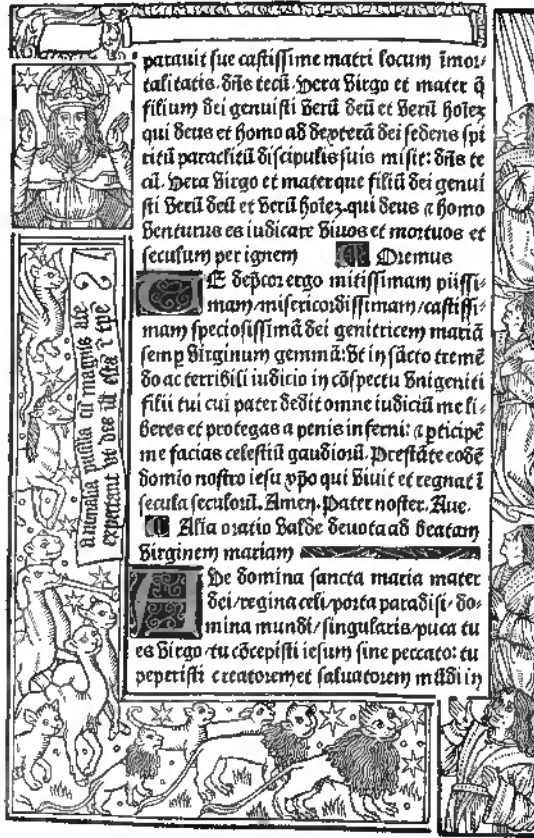 parauit sue castissime matri locum īmor-
talitatis. dn̄s tecū. Vera Virgo et mater q̄
filium dei genuisti Verū deū et Verū hoīez
qui deus et homo ad dexterā dei sedens spi
ritū paraclitū discipulis suis misit: dn̄s te
cū. Vera Virgo et mater que filiū dei genui
sti Verū deū et Verū hoīez. qui deus ⁊ homo
Venturus es iudicare Viuos et mortuos et
seculum per ignem Oremus
TE dep̄cor ergo mitissimam piissi-
mam/misericordissimam/castissi-
mam speciosissimā dei genitricem mariā
semp Virginum gemmā: Vt in sācto tremē
do ac terribili iudicio in cōspectu Vnigeniti
filii tui cui pater dedit omne iudiciū me li-
beres et protegas a penis inferni: ⁊ pticipē
me facias celestiū gaudiorū. Prestāte eodē
domio nostro iesu xp̄o qui Viuit et regnat ī
secula seculorū. Amen. Pater noster. Aue.
Alia oratio Valde deuota ad beatam
Virginem mariam
AVe domina sancta maria mater
dei/regina celi/porta paradisi/do-
mina mundi/singularis/puca tu
es Virgo/tu cōcepisti iesum sine peccato: tu
peperisti creatorem et saluatorem mūdi in
Animalia pusilla cū magnis a te
expectant Vt des ill' escā ī tp̄e